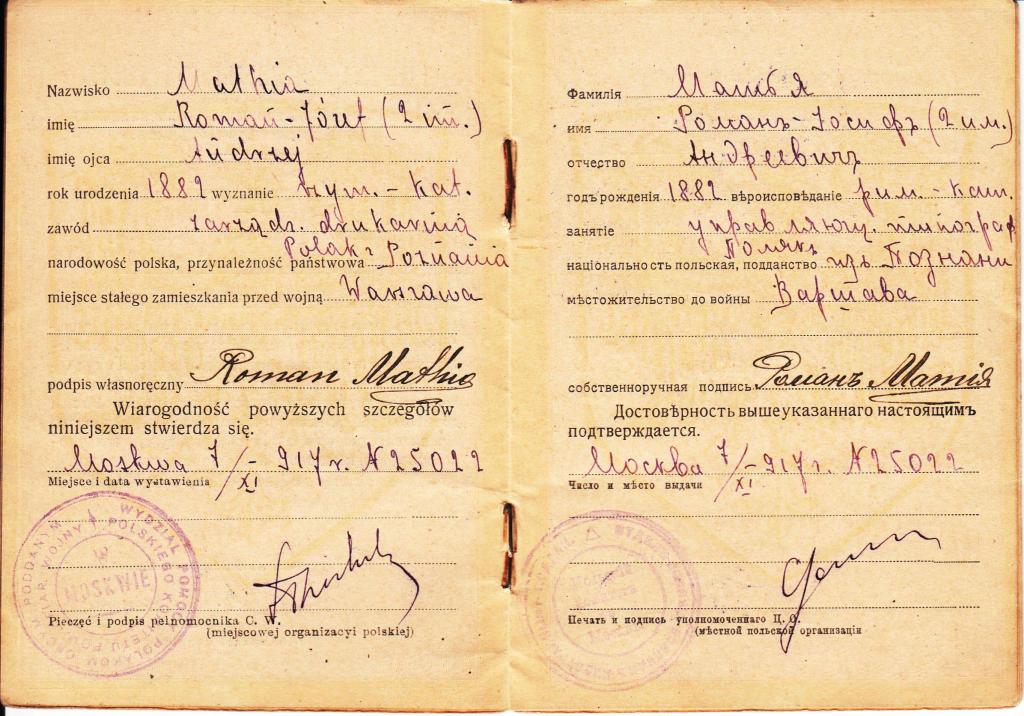 Nazwisko Mathia
imię Roman-Józef (2 im.)
imię ojca Andrzej
rok urodzenia 1882 wyznanie rzym. - kat.
zawód zarządz. drukarnią
narodowość polska, przynależność państwowa Polak z Poznania
miejsce stałego zamieszkania przed wojną Warszawa
podpis własnoręczny Roman Mathia
Wiarogodność powyższych szczegółów
niniejszem stwierdza się.
Moskwa 7/XI - 917 r. N 25022
Miejsce i data wystawienia
WYDZIAŁ POMOCY
POLSKIEGO KOMITETU
MOSKWIE
Pieczęć i podpis pełnomocnika C. W.
(miejscowej organizacyi polskiej)
Фамилія Матья
имя Романъ-Іосифъ (2 им.)
отчество Андреевичъ
годъ рожденія 1882 вѣроисповѣданіе рим. - кат.
занятіе управляющ. типограф
національность польская, подданство Полякъ изъ Познани
мѣстожительство до войны Варшава
собственноручная подпись Романъ Матія
Достовѣрность вышеуказаннаго настоящимъ
подтверждается.
Москва 7/XI - 917 г. N 25022
Число и мѣсто выдачи
Печать и подпись уполномоченнаго Ц. О.
(мѣстной польской организаціи